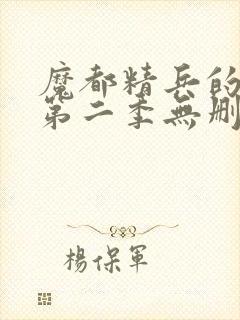 魔都精兵的
第二季無刪
楊保軍